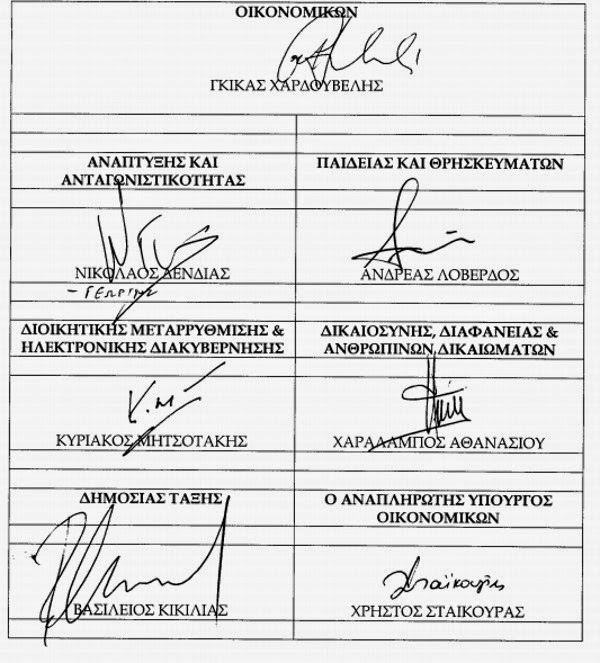 ΟΙΚΟΝΟΜΙΚΩΝ
ΓΚΙΚΑΣ ΧΑΡΔΟΥΒΕΛΗΣ
ΑΝΑΠΤΥΞΗΣ ΚΑΙ
ΑΝΤΑΓΩΝΙΣΤΙΚΟΤΗΤΑΣ
ΝΙΚΟΛΑΟΣ ΔΕΝΔΙΑΣ
- ΓΕΩΡΓΙΟΣ
ΠΑΙΔΕΙΑΣ ΚΑΙ ΘΡΗΣΚΕΥΜΑΤΩΝ
ΑΝΔΡΕΑΣ ΛΟΒΕΡΔΟΣ
ΔΙΟΙΚΗΤΙΚΗΣ ΜΕΤΑΡΡΥΘΜΙΣΗΣ &
ΗΛΕΚΤΡΟΝΙΚΗΣ ΔΙΑΚΥΒΕΡΝΗΣΗΣ
Κ. Μ
ΚΥΡΙΑΚΟΣ ΜΗΤΣΟΤΑΚΗΣ
ΔΙΚΑΙΟΣΥΝΗΣ, ΔΙΑΦΑΝΕΙΑΣ &
ΑΝΘΡΩΠΙΝΩΝ ΔΙΚΑΙΩΜΑΤΩΝ
ΧΑΡΑΛΑΜΠΟΣ ΑΘΑΝΑΣΙΟΥ
ΔΗΜΟΣΙΑΣ ΤΑΞΗΣ
ΒΑΣΙΛΕΙΟΣ ΚΙΚΙΛΙΑΣ
Ο ΑΝΑΠΛΗΡΩΤΗΣ ΥΠΟΥΡΓΟΣ
ΟΙΚΟΝΟΜΙΚΩΝ
Σταϊκούρας
ΧΡΗΣΤΟΣ ΣΤΑΙΚΟΥΡΑΣ